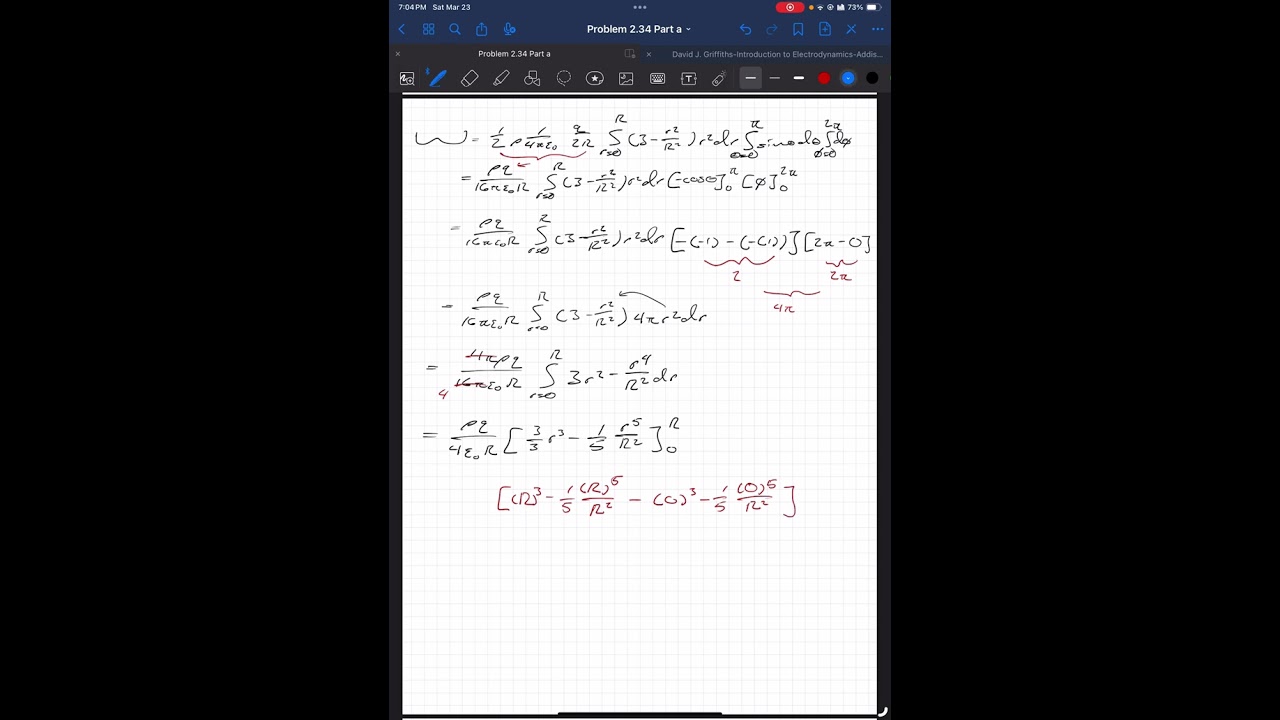 7:04 PM Sat Mar 23
73%
Problem 2.34 Part a
Problem 2.34 Part a
David J. Griffiths-Introduction to Electrodynamics-Addis...
W = 1/2 ρ 1/4πε₀ q/2R ∫_{r=0}^{R} (3 - r²/R²) r²dr ∫_{θ=0}^{π} sinθ dθ ∫_{φ=0}^{2π} dφ
= ρq/16πε₀R ∫_{r=0}^{R} (3 - r²/R²) r²dr [-cosθ]₀^π [φ]₀^{2π}
= ρq/16πε₀R ∫_{r=0}^{R} (3 - r²/R²) r²dr [-(-1) - (-(1))] [2π - 0]
2 2π
4π
= ρq/16πε₀R ∫_{r=0}^{R} (3 - r²/R²) 4πr²dr
= 4πρq/16πε₀R ∫_{r=0}^{R} 3r² - r⁴/R² dr
4
= ρq/4ε₀R [3/3 r³ - 1/5 r⁵/R²]₀^R
[(R)³ - 1/5 (R)⁵/R² - (0)³ - 1/5 (0)⁵/R²]